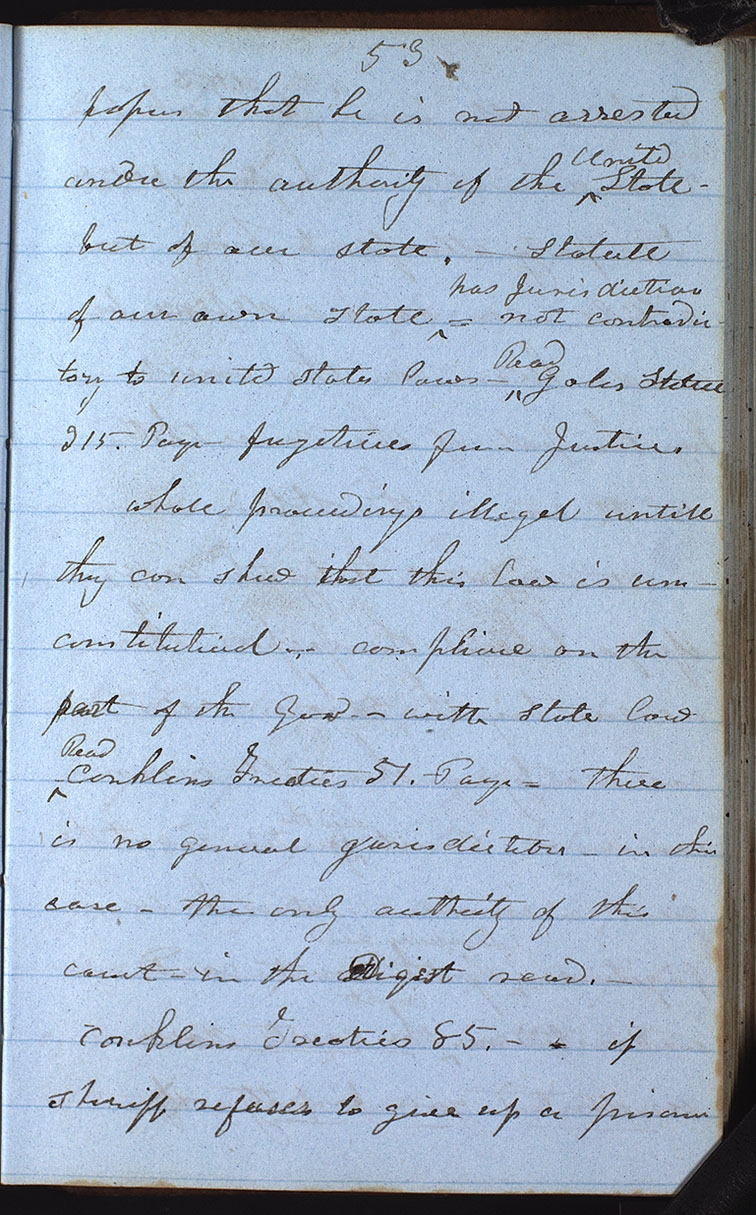 53
papers that he is not arrested
under the authority of the ^ United State -
but of our state. - Statute
of our own State ^ has Jurisdiction = not contradic-
tory to united states laws - ^ Read Gales Statue
215. Page fugetives from Justice.
whole proceedings illegal untill
they can shew that this law is un-
constitutional - compliance on the
part of the Gov. - with State law
^ Read Conklins Treaties 51. Page = there
is no general jurisdiction - in this
case - the only authority of this
court - in the Digest read. -
Conklins Treaties 85. - - if
sheriff refuses to give up a prisoner